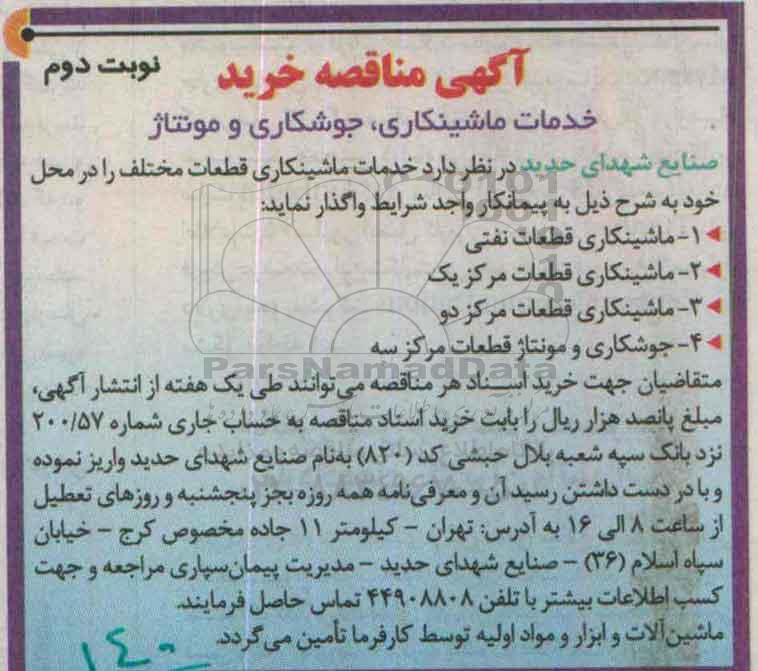 نوبت دوم
آگهی مناقصه خرید
خدمات ماشینکاری، جوشکاری و مونتاژ
صنایع شهدای حدید در نظر دارد خدمات ماشینکاری قطعات مختلف را در محل
خود به شرح ذیل به پیمانکار واجد شرایط واگذار نماید:
۱- ماشینکاری قطعات نفتی
۲- ماشینکاری قطعات مرکز یک
۳- ماشینکاری قطعات مرکز دو
۴- جوشکاری و مونتاژ قطعات مرکز سه
ParsNamadData
متقاضیان جهت خرید اسناد هر مناقصه می‌توانند طی یک هفته از انتشار آگهی،
مبلغ پانصد هزار ریال را بابت خرید اسناد مناقصه به حساب جاری شماره ۲۰۰/۵۷
نزد بانک سپه شعبه بلال حبشی کد (۸۲۰) به‌نام صنایع شهدای حدید واریز نموده
و با در دست داشتن رسید آن و معرفی‌نامه همه روزه بجز پنجشنبه و روزهای تعطیل
از ساعت ۸ الی ۱۶ به آدرس: تهران - کیلومتر ۱۱ جاده مخصوص کرج - خیابان
سپاه اسلام (۳۶) - صنایع شهدای حدید - مدیریت پیمان‌سپاری مراجعه و جهت
کسب اطلاعات بیشتر با تلفن ۴۴۹۰۸۸۰۸ تماس حاصل فرمایند.
ماشین‌آلات و ابزار و مواد اولیه توسط کارفرما تأمین می‌گردد.